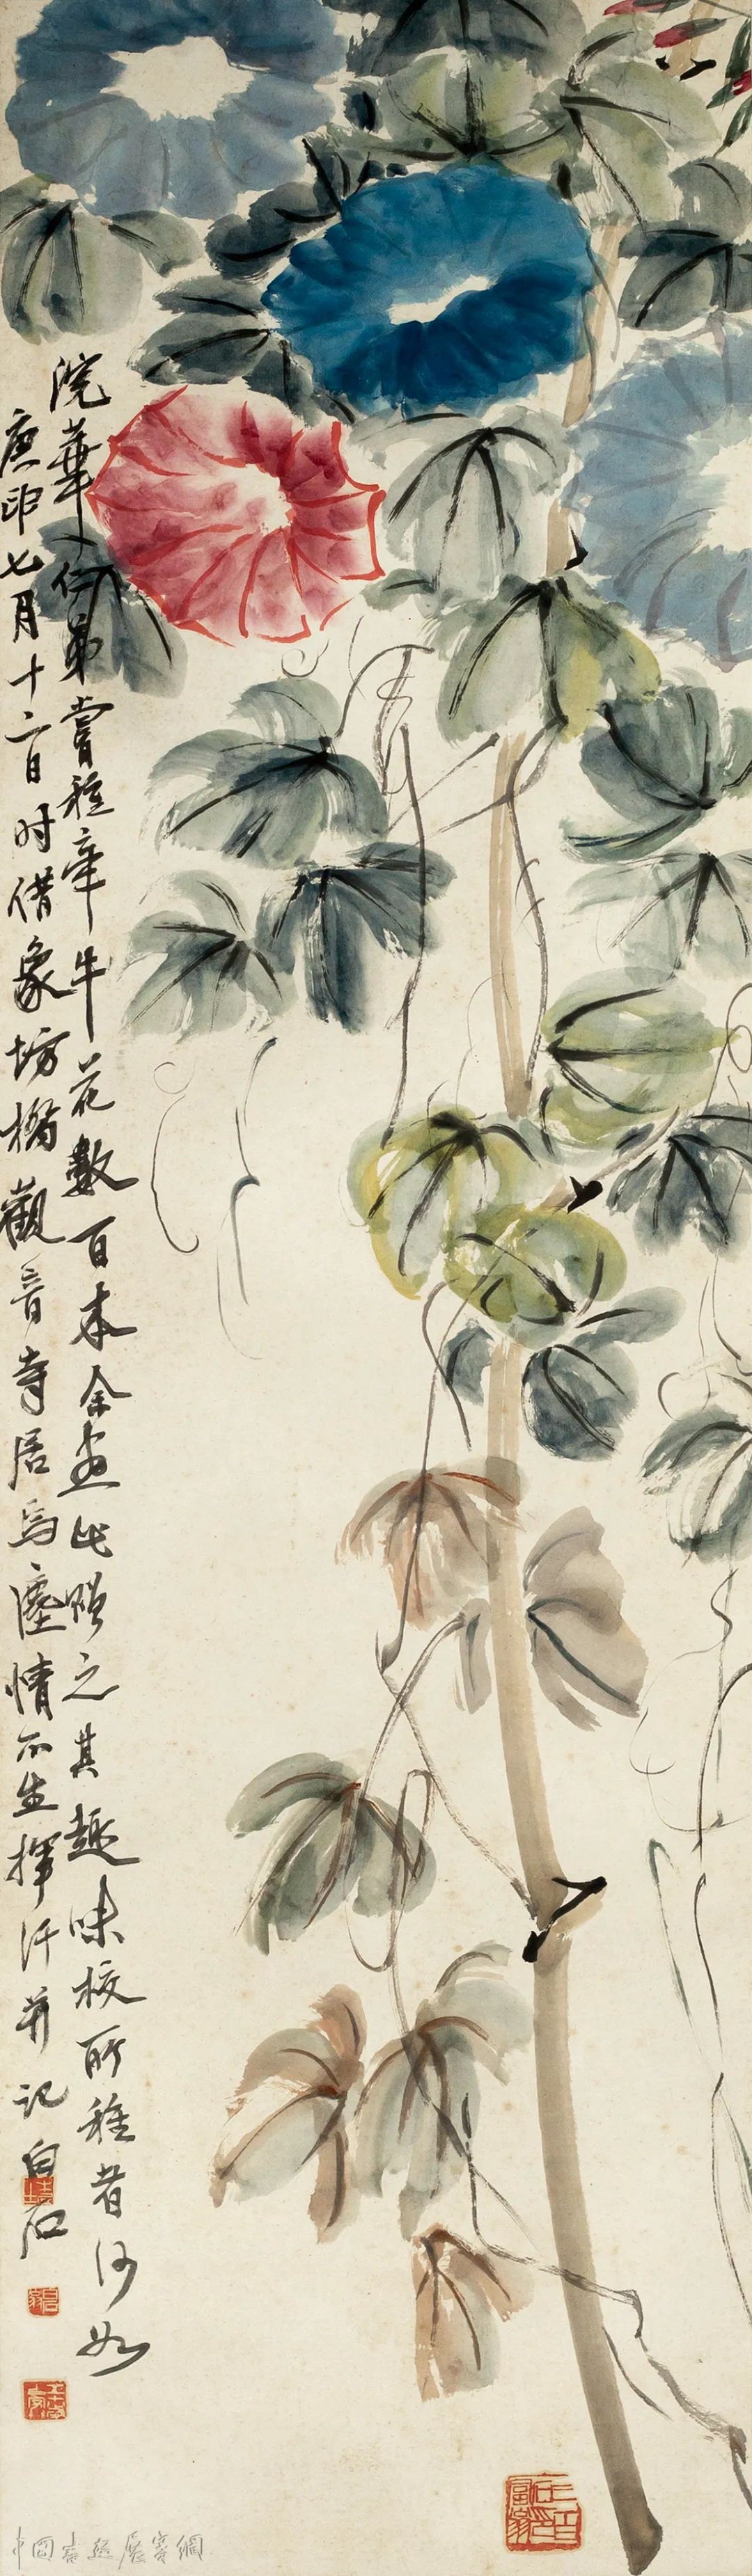 浣華仁弟嘗種牽牛花數百本余畫此贈之其趣味校所種者何如
庚申七月十二日时借象坊橋觀音寺居焉塵情不生揮汗并記白石
三百石印富翁
中國書畫展賽網